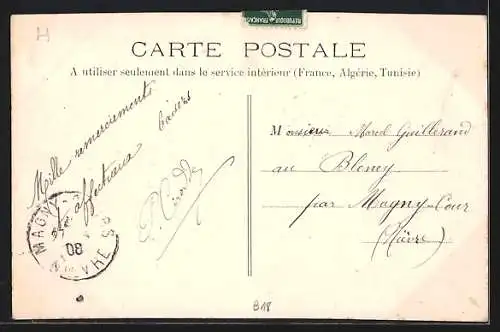 H
REPUBLIQUE FRANÇAISE
CARTE POSTALE
A utiliser seulement dans le service intérieur (France, Algérie, Tunisie)
Mille remerciements
affectueux
baisers
Monsieur Marcel Guillerand
au Bleney
par Magny-Cour
(Nièvre)
MAGNY
08
B18